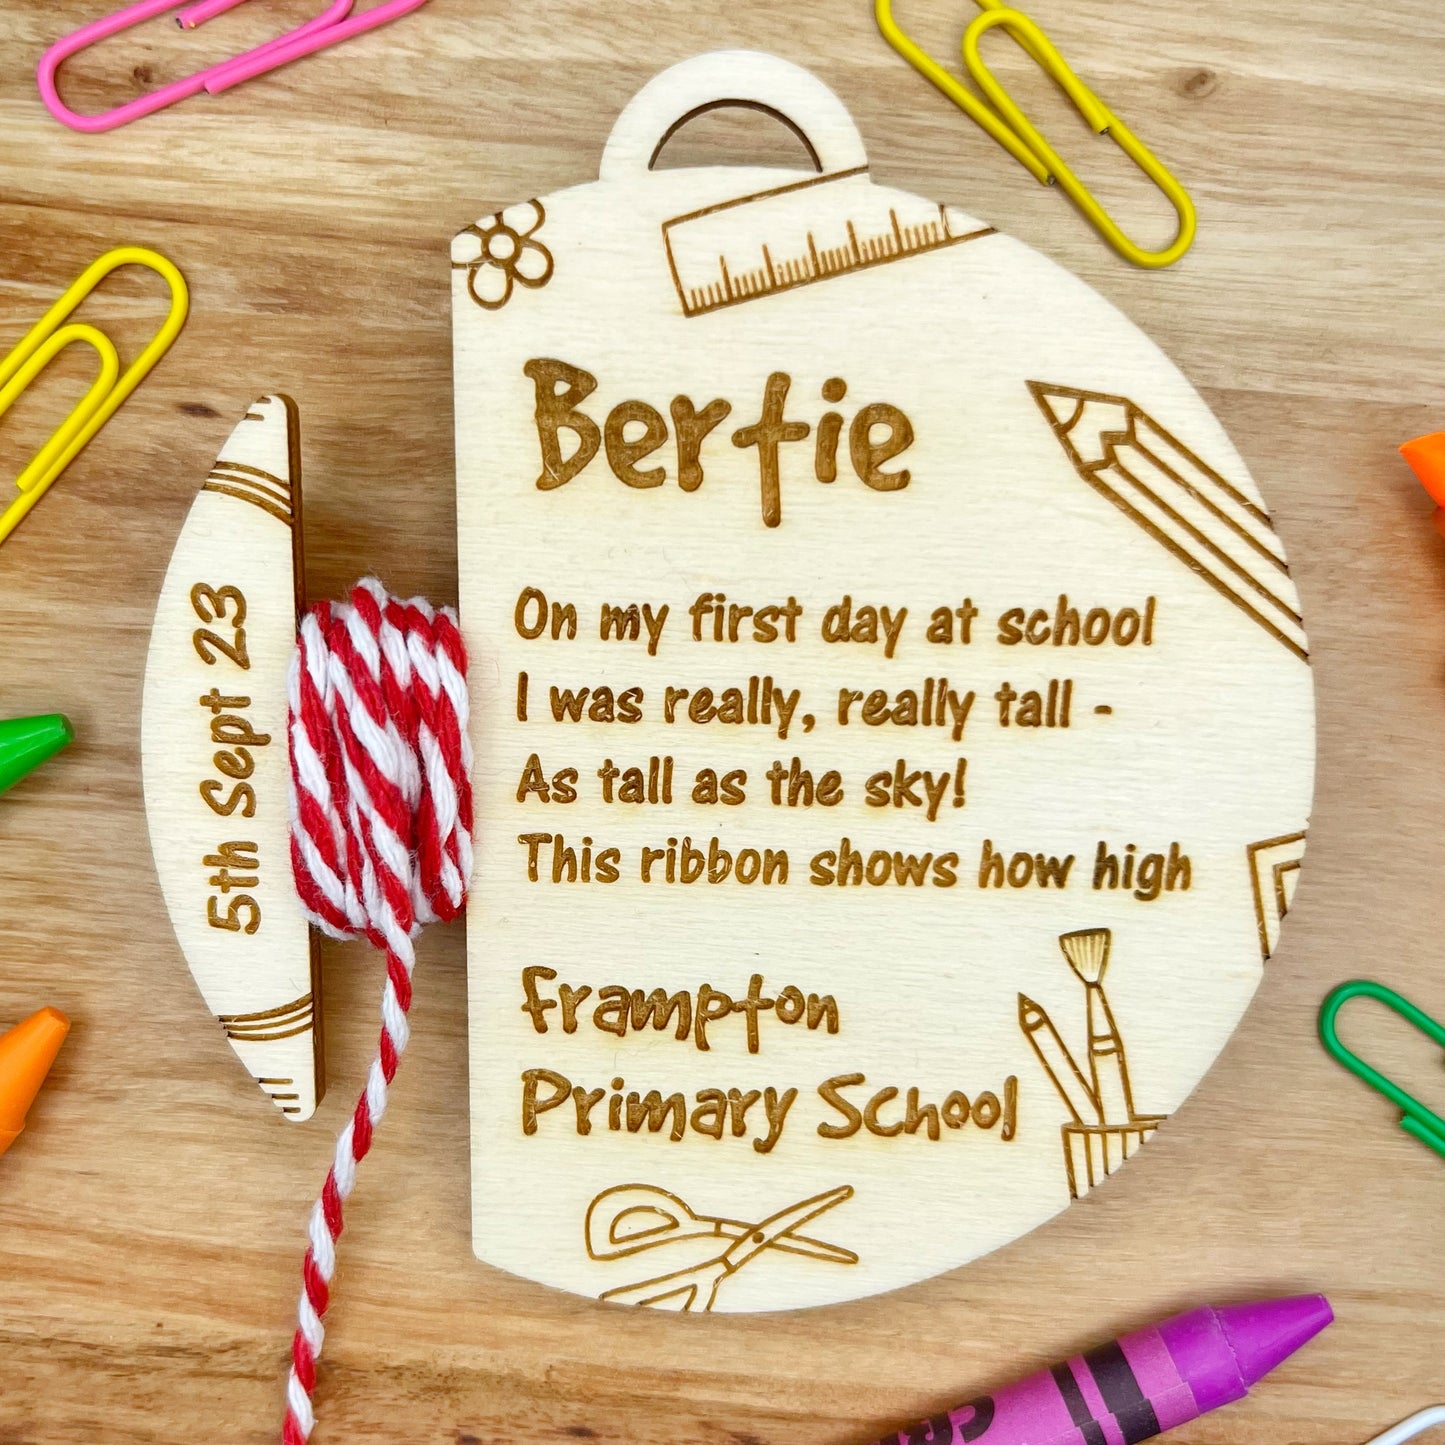 Bertie
On my first day at school
I was really, really tall -
As tall as the sky!
This ribbon shows how high
Frampton
Primary School
5th Sept 23